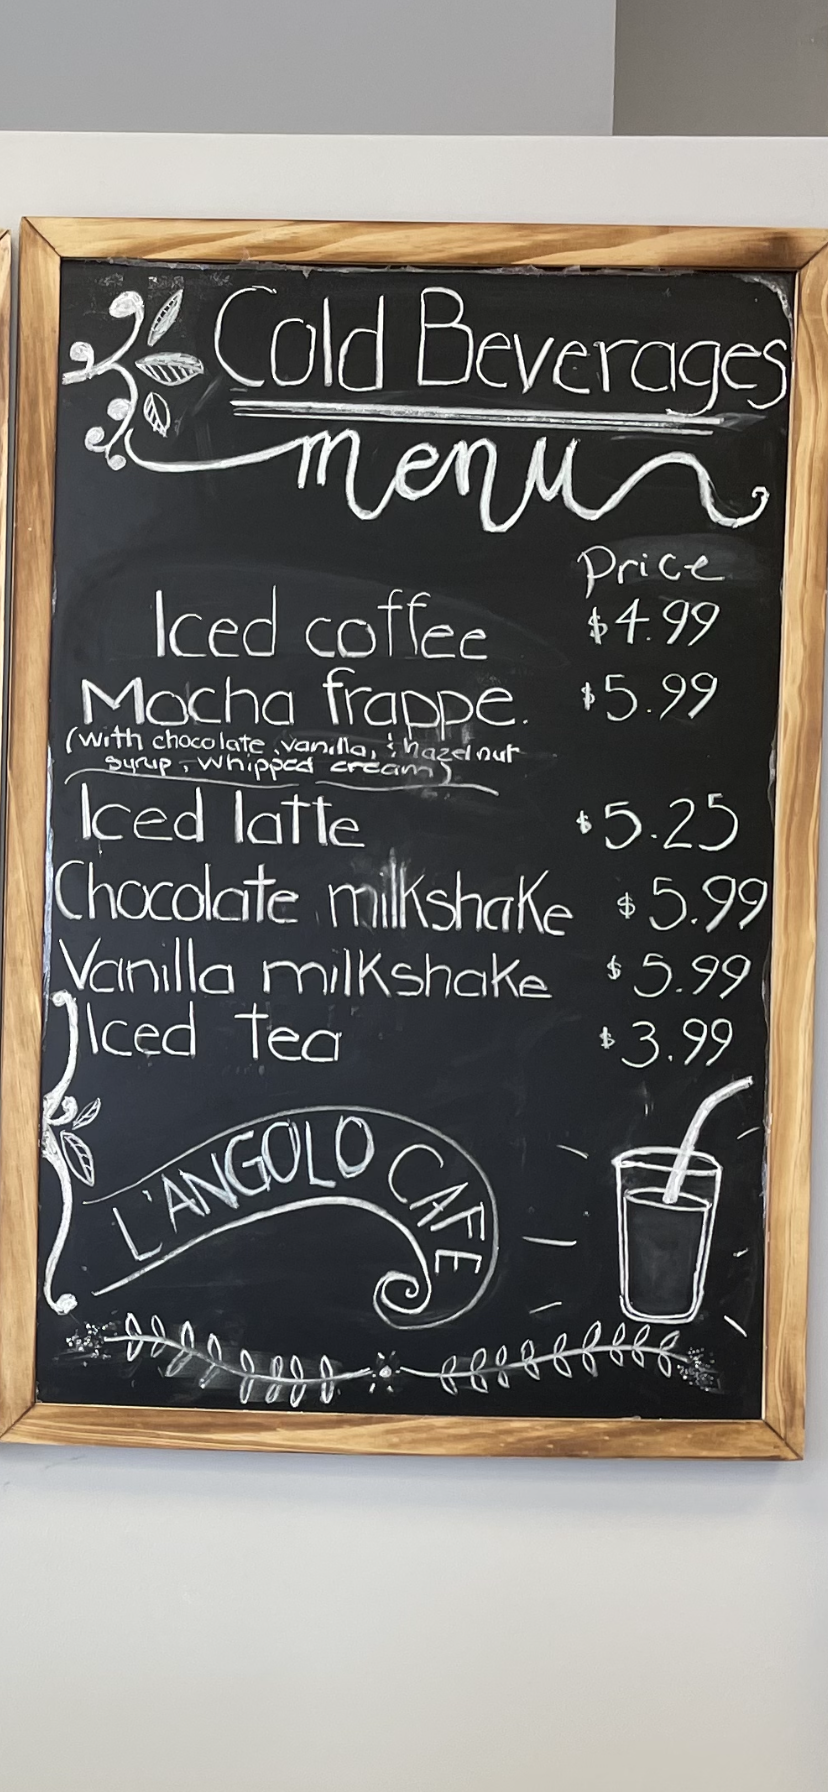 Cold Beverages
menu
Price
Iced coffee $4.99
Mocha frappe. $5.99
(with chocolate, vanilla, & hazelnut
syrup, whipped cream)
Iced latte $5.25
Chocolate milkshake $5.99
Vanilla milkshake $5.99
Iced tea $3.99
L'ANGOLO CAFE